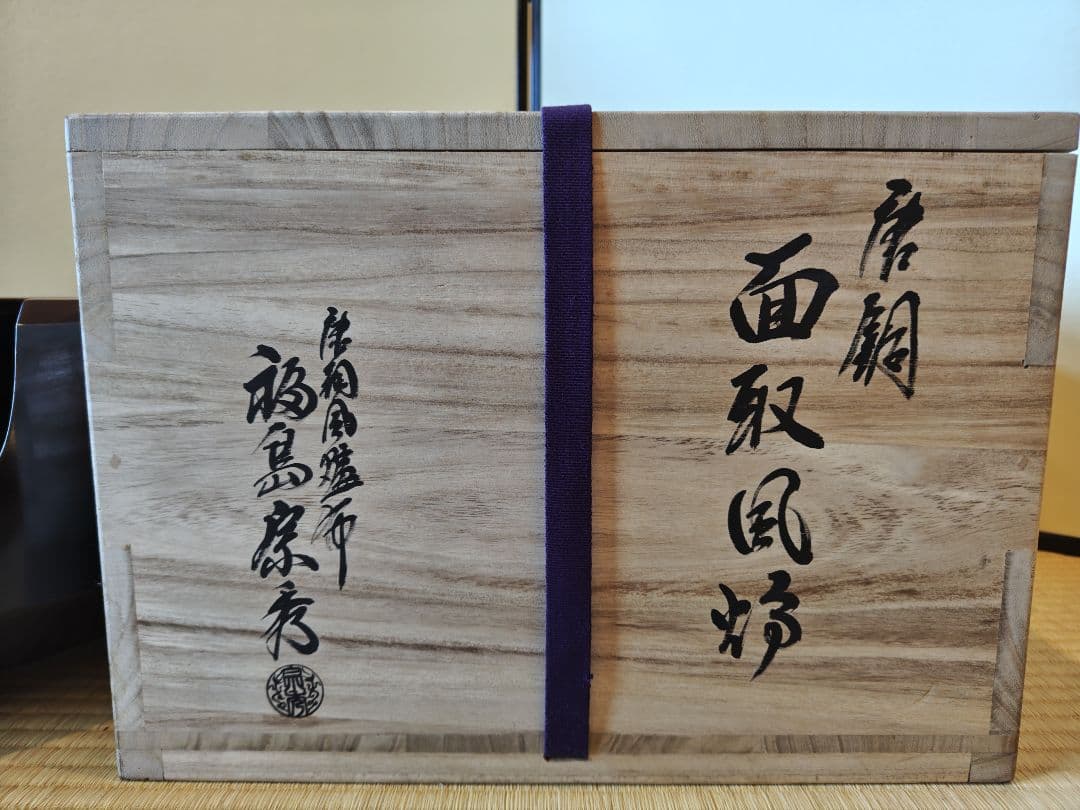 唐銅
面取風炉
唐銅風爐師
福島宗秀